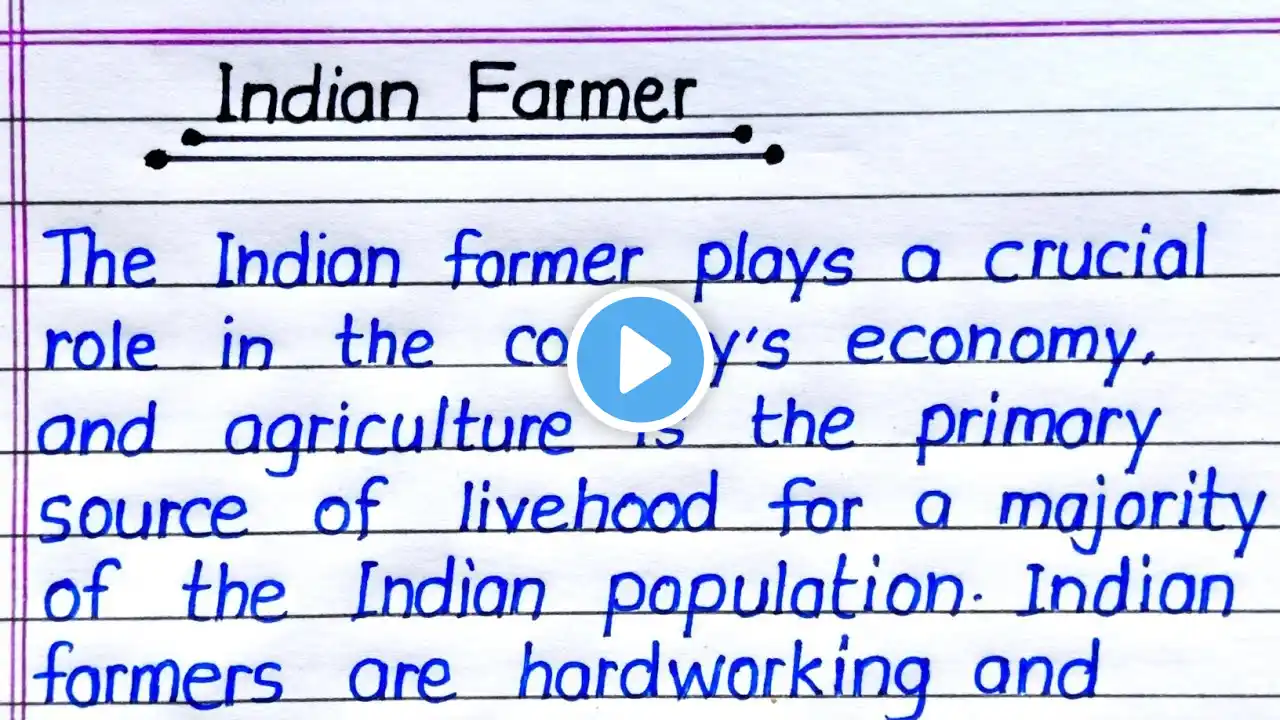 Indian Farmer
The Indian farmer plays a crucial
role in the economy,
and agriculture is the primary
source of livehood for a majority
of the Indian population. Indian
farmers are hardworking and